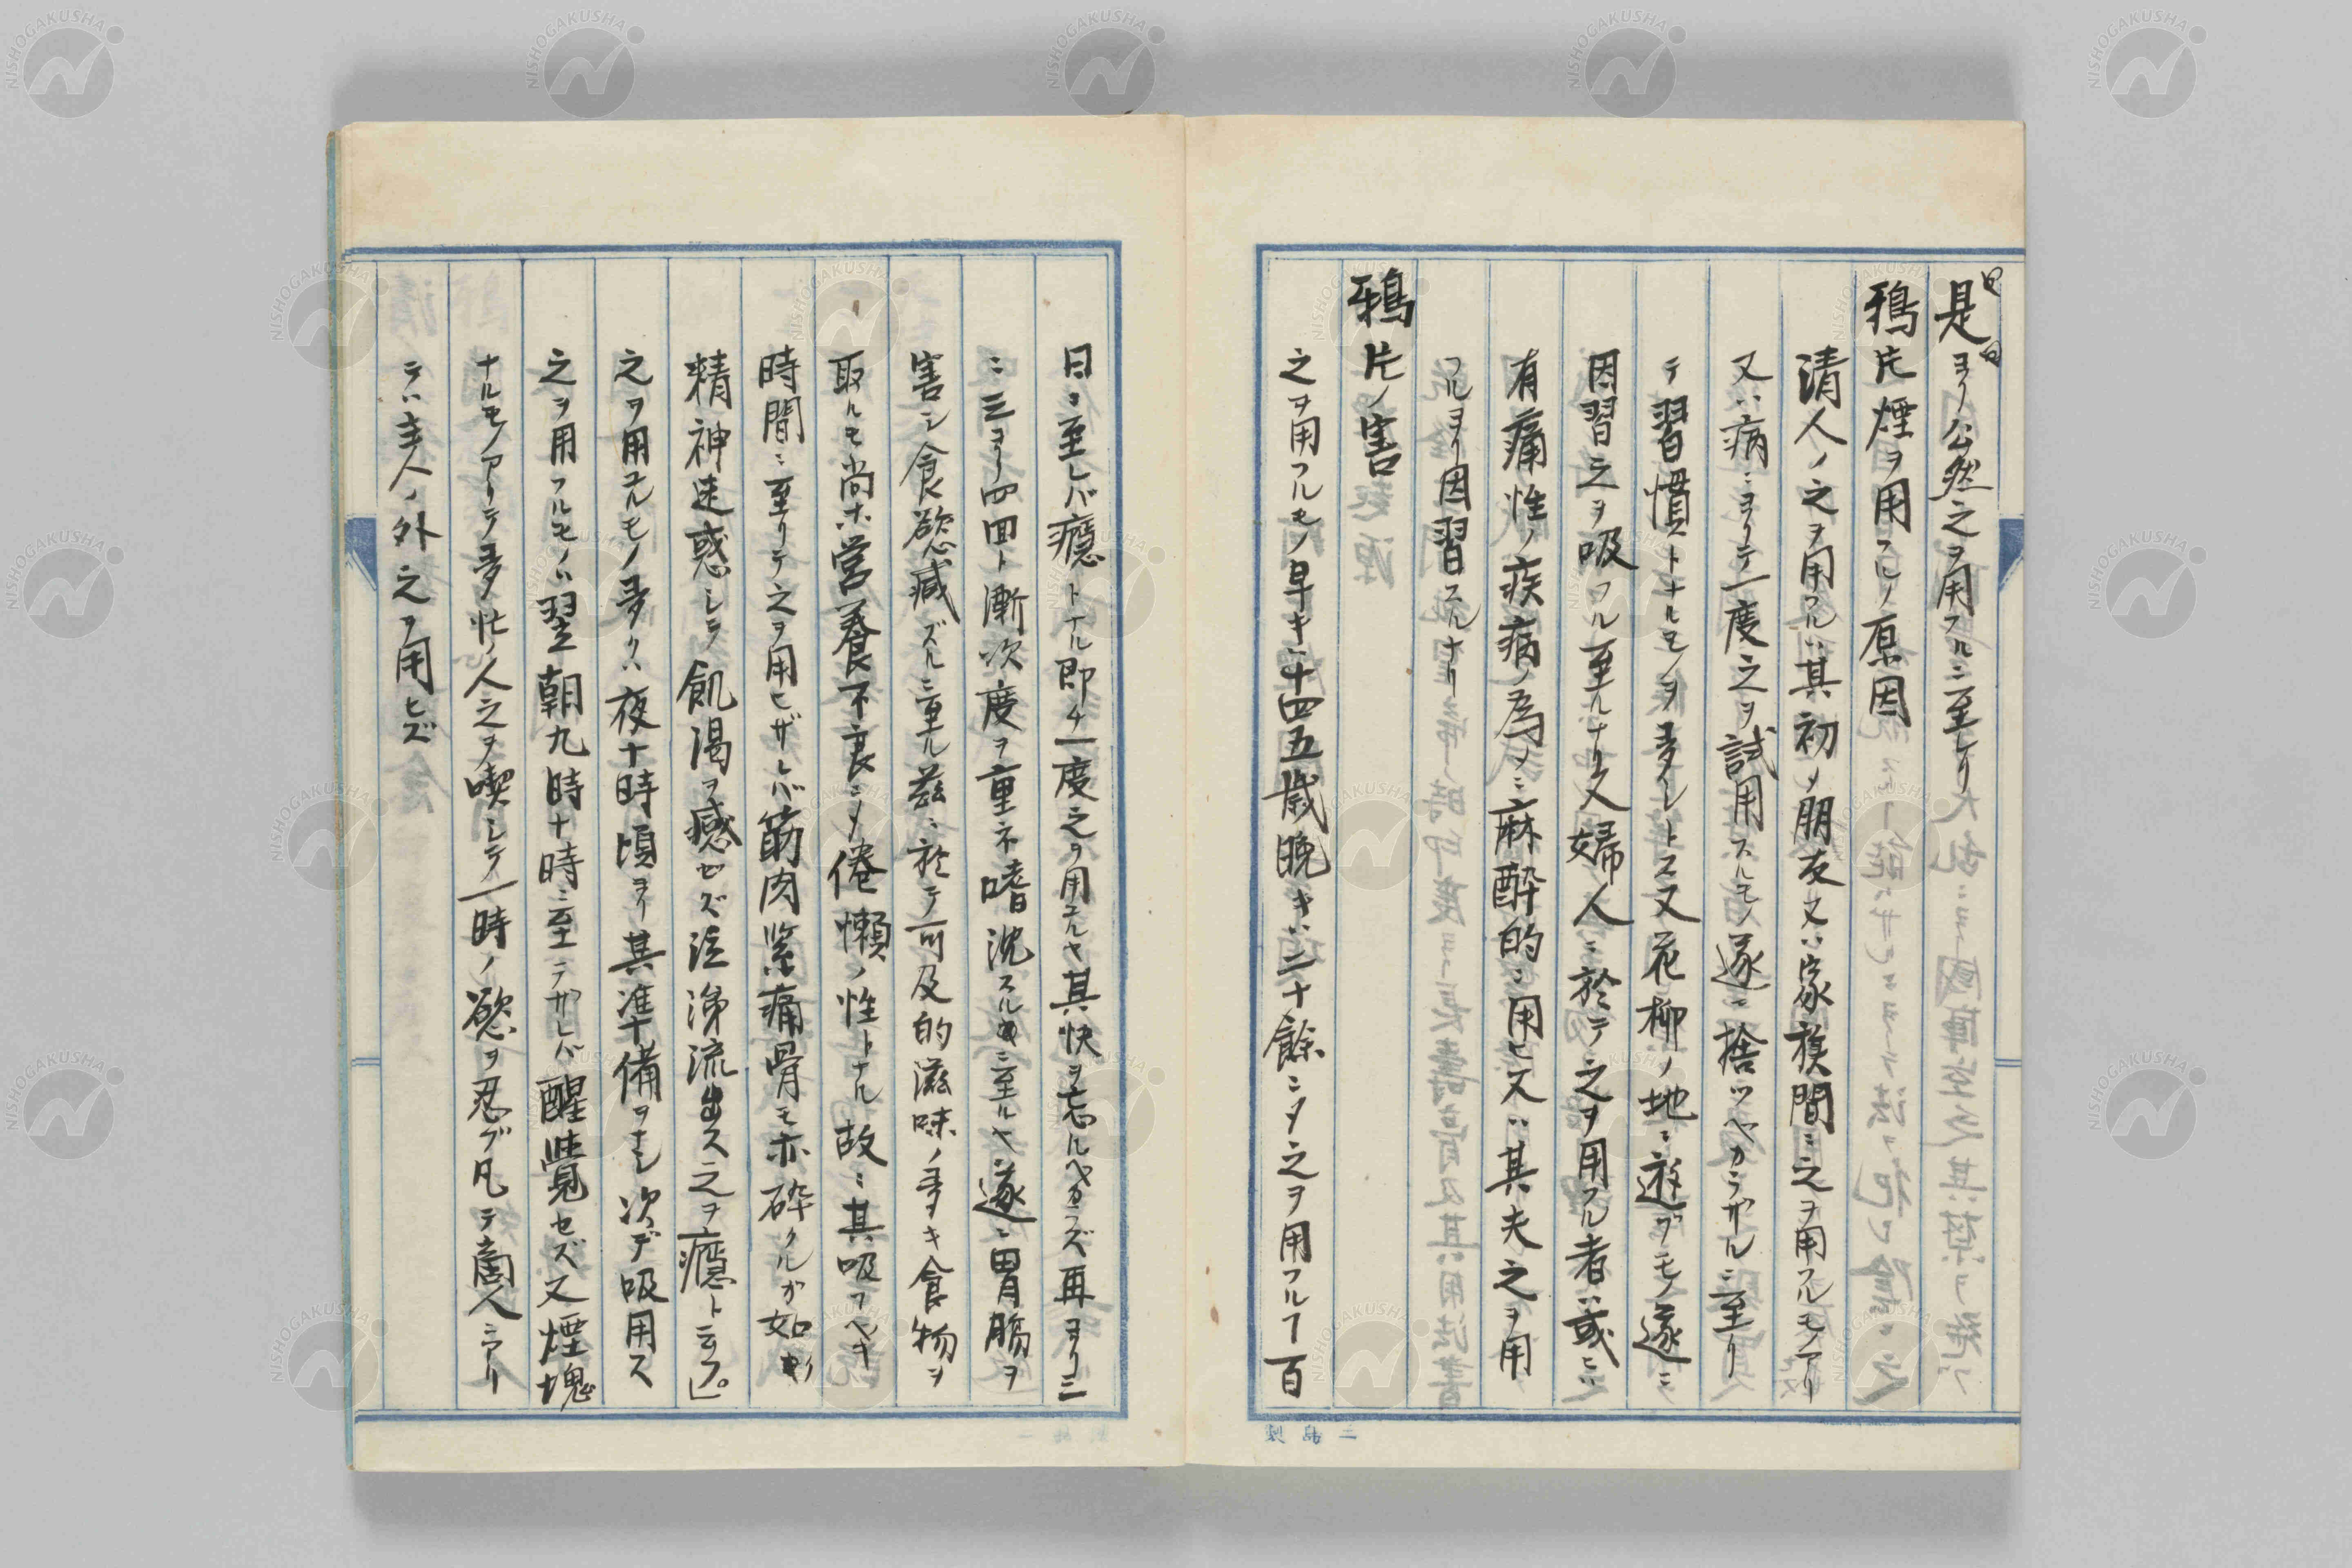 是ヨリ公然之ヲ用フルニ至レリ
鴉片煙ヲ用フルノ原因
清人ノ之ヲ用フルハ其初メ朋友又ハ家族間ニ之ヲ用フルモノアリ
又ハ病ニヨリテ一度之ヲ試用スルモノ遂ニ捨ツベカラザルニ至リ
テ習慣トナルモノヲ多シトス又花柳ノ地ニ遊ブモノ遂ニ
因習之ヲ吸フル至ルナリ又婦人ニ於テ之ヲ用フル者ハ或ニハ
有痛性ノ疾病ノ為メニ麻酔的ニ用ヒ又ハ其夫之ヲ用
フルヨリ因習スルナリ
鴉片ノ害
之ヲ用フルモノ早キハ十四五歳晩キハ二十餘ニシメ之ヲ用フルヿ百
日ニ至レバ癮トナル即チ一度之ヲ用ユルヤ其快ヲ忘ルヘカラズ再ヨリ三
ニ三ヨリ四回ト漸次度ヲ重ネ嗜沈スルニ至ルヤ遂ニ胃腸ヲ
害シ食慾減ズルニ至ル茲ニ於テ可及的滋味ノ多キ食物ヲ
取ルモ尚ホ営養不良ニメ倦懶ノ性トナル故ニ其吸フベキ
時間ニ至リテ之ヲ用ヒザレバ筋肉緊痛骨モ亦砕クルガ如ク
精神迷惑シテ飢渇ヲ感セズ泣涕流出ス之ヲ癮ト云フ」
之ヲ用ユルモノ多クハ夜十時頃ヨリ其準備ヲナシ次デ吸用ス
之ヲ用フルモノハ翌朝九時十時ニ至ラザレバ醒覺セズ又煙塊
ナルモノアリテ多忙ノ人之ヲ喫シテ一時ノ慾ヲ忍ブ凡テ商人ニアリ
テハ主人ノ外之ヲ用ヒズ
NISHOGAKUSHA